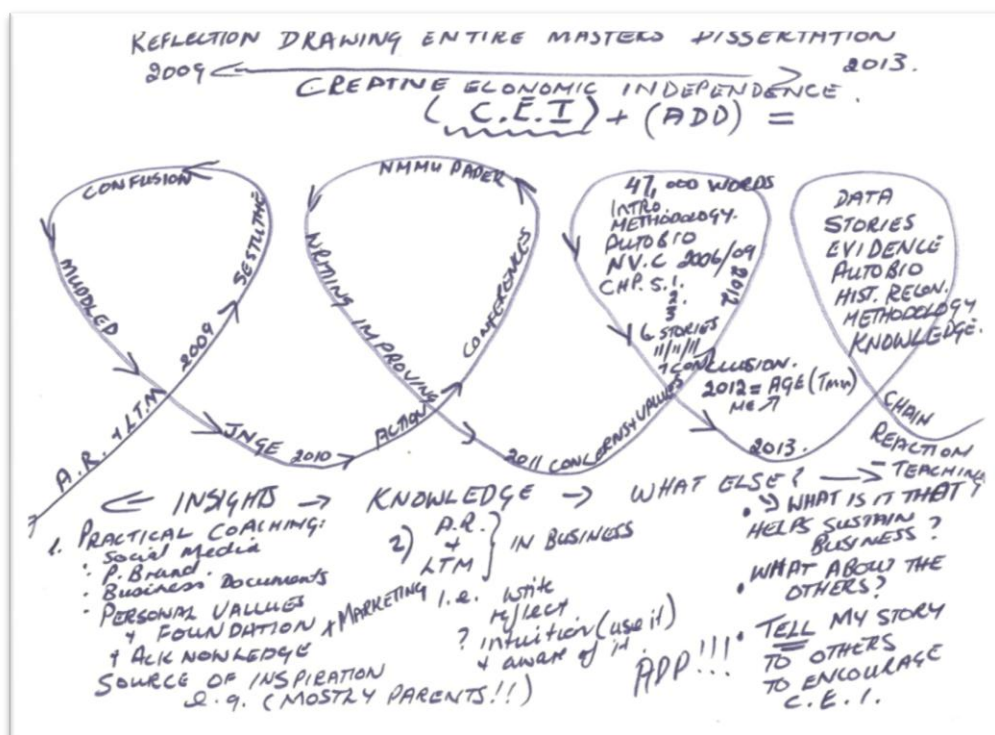 REFLECTION DRAWING ENTIRE MASTERS DISSERTATION
2009
2013.
CREATIVE ECONOMIC INDEPENDENCE.
(C.E.I) + (ADD) =
CONFUSION
MUDDLED
A.R. + LT.M
2009
JNGE 2010
ACTION
CONFERENCES
NMMU PAPER
WRITING IMPROVING
2011 CONCERNS VALUES
2012
47,000 WORDS
INTRO.
METHODOLOGY.
AUTOBIO
NV.C 2006/09
CHP. 5.1.
2.
3
6 STORIES
11/11/11
CONCLUSION.
2012 = AGE (Tmn)
ME
2013.
DATA
STORIES
EVIDENCE
AUTOBIO
HIST. RECON.
METHODOLOGY
KNOWLEDGE.
CHAIN
REACTION
TEACHING
INSIGHTS
KNOWLEDGE
WHAT ELSE?
1. PRACTICAL COACHING:
Social Media
P. Brand.
Business Documents
PERSONAL VALUES
+ FOUNDATION + MARKETING
+ ACKNOWLEDGE
SOURCE OF INSPIRATION
e.g. (MOSTLY PARENTS!!)
2) A.R.
+
LTM
IN BUSINESS
I.e. write
reflect
? intuition (use it)
+ aware of it.
WHAT IS IT THAT
HELPS SUSTAIN
BUSINESS?
WHAT ABOUT THE
OTHERS?
ADD!!!
TELL MY STORY
TO OTHERS
TO ENCOURAGE
C.E.I.